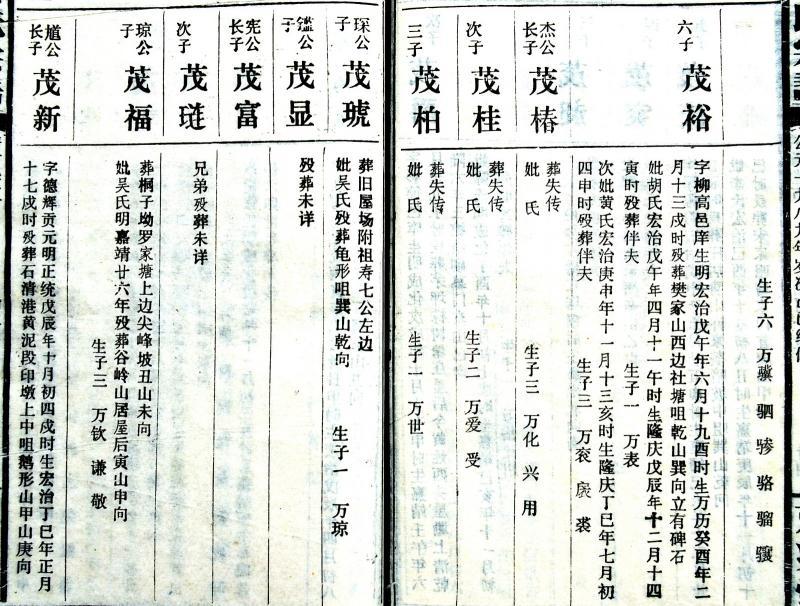 生子六 万骥 驷 骖 骆 骝 骧
六子
茂裕
字柳高邑庠生明宏治戊午年六月十九酉时生万历癸酉年二
月十三戌时殁葬樊家山西边社塘咀乾山巽向立有碑石
妣胡氏宏治戊午年四月十一午时生隆庆戊辰年十二月十四
寅时殁葬伴夫 生子一 万表
次妣黄氏宏治庚申年十一月十三亥时生隆庆丁巳年七月初
四申时殁葬伴夫 生子三 万衮 裳 裘
杰公
长子
茂椿
葬失传
妣 氏 生子三 万化 兴 用
次子
茂桂
葬失传
妣 氏 生子二 万爱 受
三子
茂柏
葬失传
妣 氏 生子一 万世
琛公
子
茂琥
葬旧屋场附祖寿七公左边
妣吴氏殁葬龟形咀巽山乾向 生子一 万琼
鑑公
子
茂显
殁葬未详
宪公
长子
茂富
次子
茂琏
兄弟殁葬未详
琼公
子
茂福
葬桐子坳罗家塘上边尖峰坡丑山未向
妣吴氏明嘉靖廿六年殁葬谷岭山居屋后寅山申向
生子三 万钦 谦 敬
馗公
长子
茂新
字德辉贡元明正统戊辰年十月初四戌时生宏治丁巳年正月
十七戌时殁葬石清港黄泥段印墩上中咀鹅形山甲山庚向